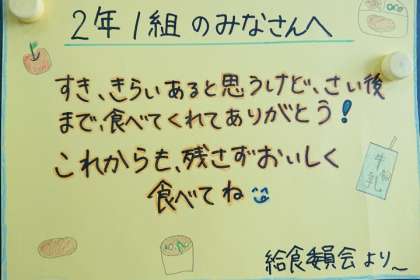 2年1組のみなさんへ
すき、きらいあると思うけど、さい後
まで、食べてくれてありがとう!
これからも、残さずおいしく
食べてね
牛乳
給食委員会より~